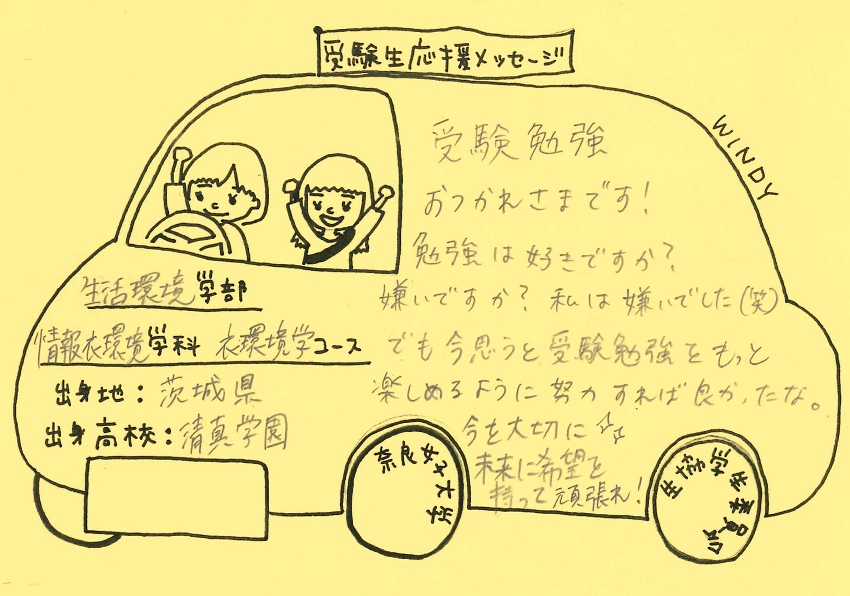 受験生応援メッセージ
WINDY
受験勉強
おつかれさまです!
勉強は好きですか?
嫌いですか? 私は嫌いでした(笑)
でも今思うと受験勉強をもっと
楽しめるように努力すれば良かったな。
今を大切に
未来に希望を
持って頑張れ!
生活環境学部
情報衣環境学科 衣環境学コース
出身地:茨城県
出身高校:清真学園
奈良女子大学
生協学生委員会